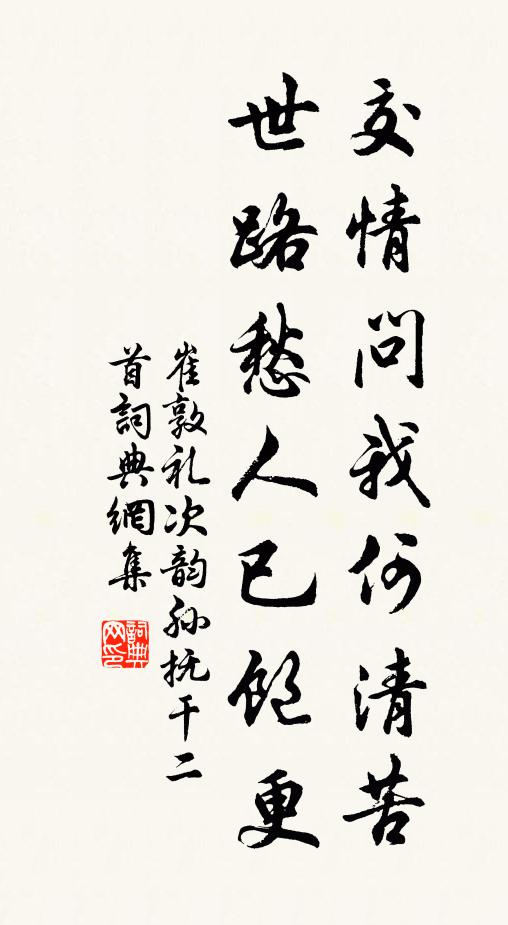 交情問我何清苦
世路愁人已飽更
崔敦礼次韵孙抚干二
首詞典網集
詞典网印